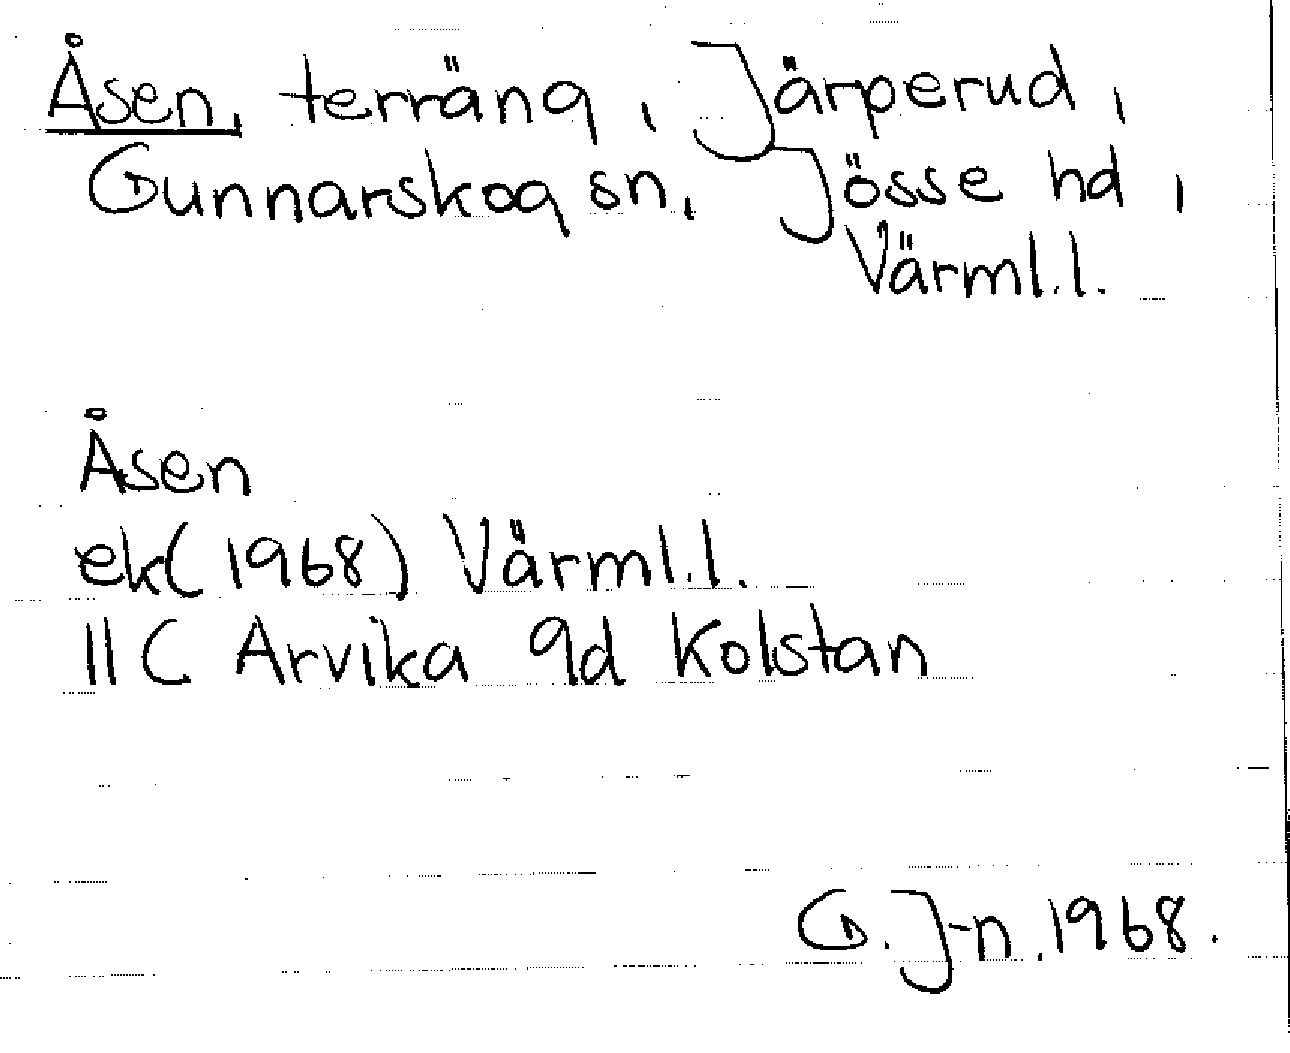 Åsen, terräng, Järperud,
Gunnarskog sn, Jösse hd,
Värml.l.
Åsen
ek(1968) Värml.l.
11 C Arvika 9d Kolstan
G. J-n, 1968.